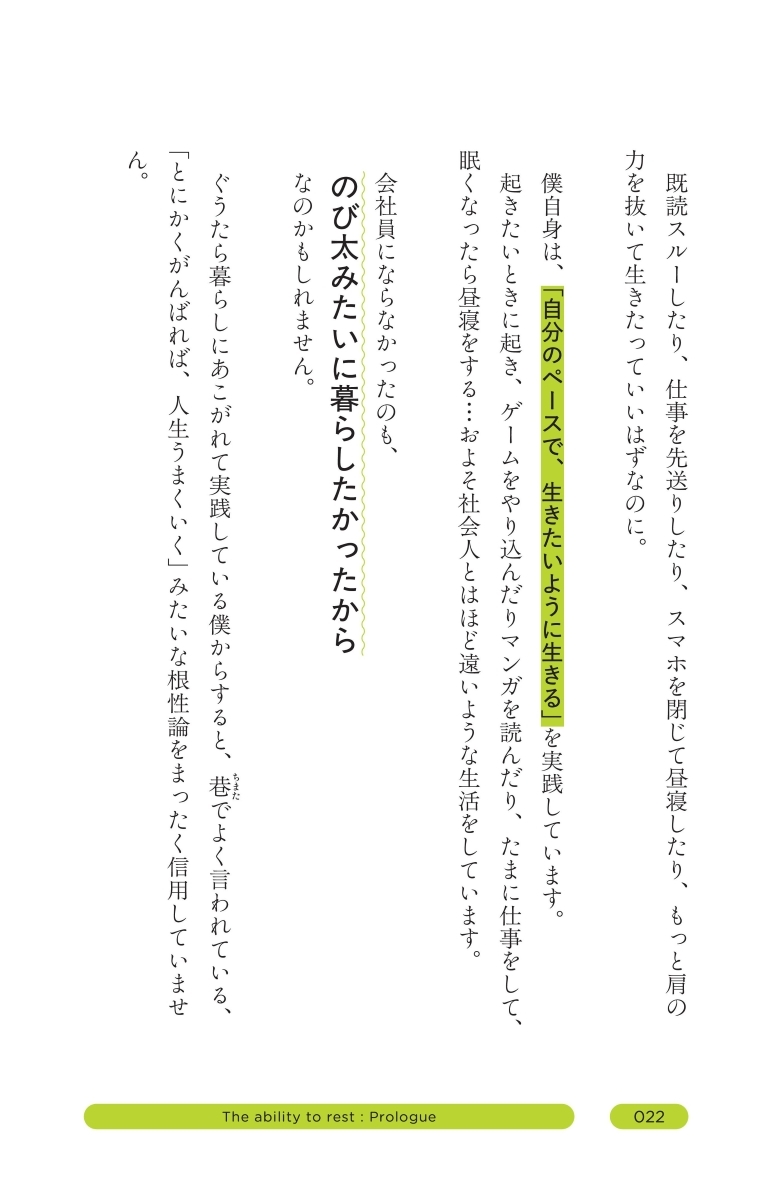 既読スルーしたり、仕事を先送りしたり、スマホを閉じて昼寝したり、もっと肩の
力を抜いて生きたっていいはずなのに。
僕自身は、「自分のペースで、生きたいように生きる」を実践しています。
起きたいときに起き、ゲームをやり込んだりマンガを読んだり、たまに仕事をして、
眠くなったら昼寝をする…およそ社会人とはほど遠いような生活をしています。
会社員にならなかったのも、
のび太みたいに暮らしたかったから
なのかもしれません。
ぐうたら暮らしにあこがれて実践している僕からすると、巷でよく言われている、
ちまた
「とにかくがんばれば、人生うまくいく」みたいな根性論をまったく信用していませ
ん。
The ability to rest : Prologue
022